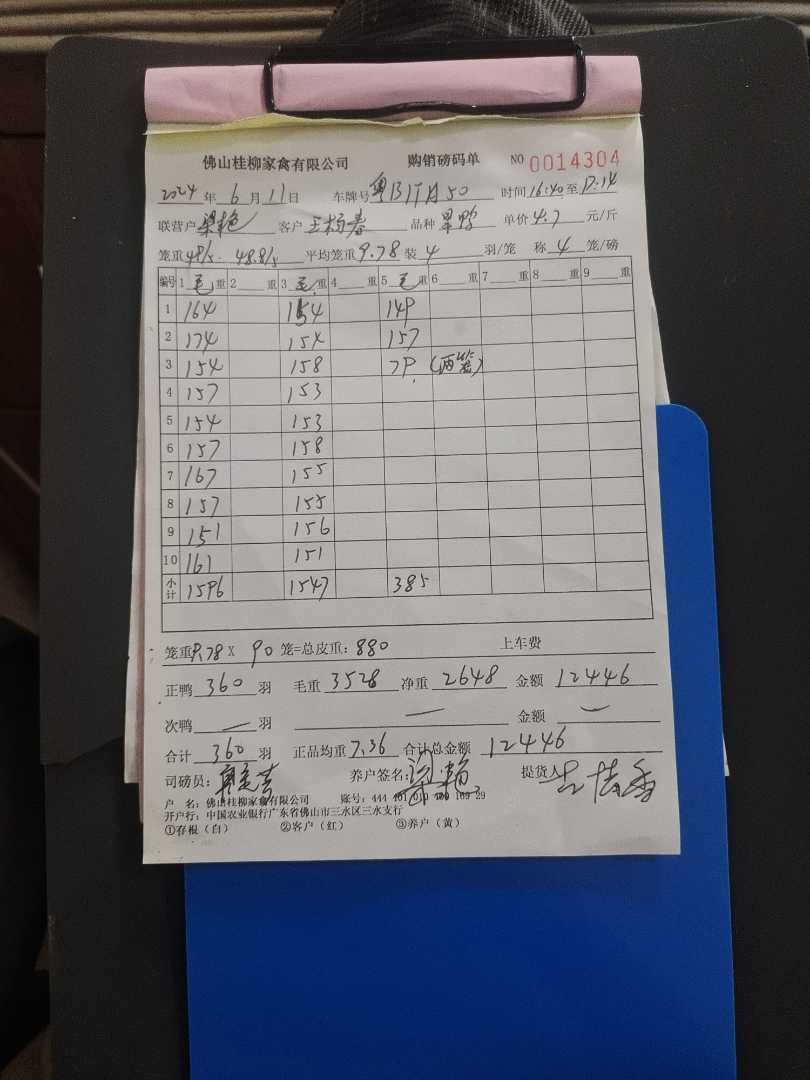 佛山桂柳家禽有限公司 购销磅码单 NO 0014304
2024年6月11日 车牌号 粤B 50 时间16:40至17:14
联营户 梁艳 客户 王杨春 品种 单价4.7元/斤
笼重48/5. 48.8/5 平均笼重9.78装4羽/笼 称4笼/磅
编号 1毛重 2重 3毛重 4重 5毛重 6重 7重 8重 9重
1 164 154 149
2 174 154 157
3 154 158 79 (两笼)
4 157 153
5 154 153
6 157 158
7 167 155
8 157 155
9 151 156
10 161 151
小计 1596 1547 385
笼重9.78X90笼=总皮重:880 上车费
正鸭360羽 毛重3528净重2648金额12446
次鸭—羽 — 金额—
合计360羽 正品均重7.36合计总金额12446
司磅员: 养户签名:梁艳 提货人
户 名:佛山桂柳家禽有限公司 账号:444 29
开户行:中国农业银行广东省佛山市三水区三水支行
①存根(白) ②客户(红) ③养户(黄)